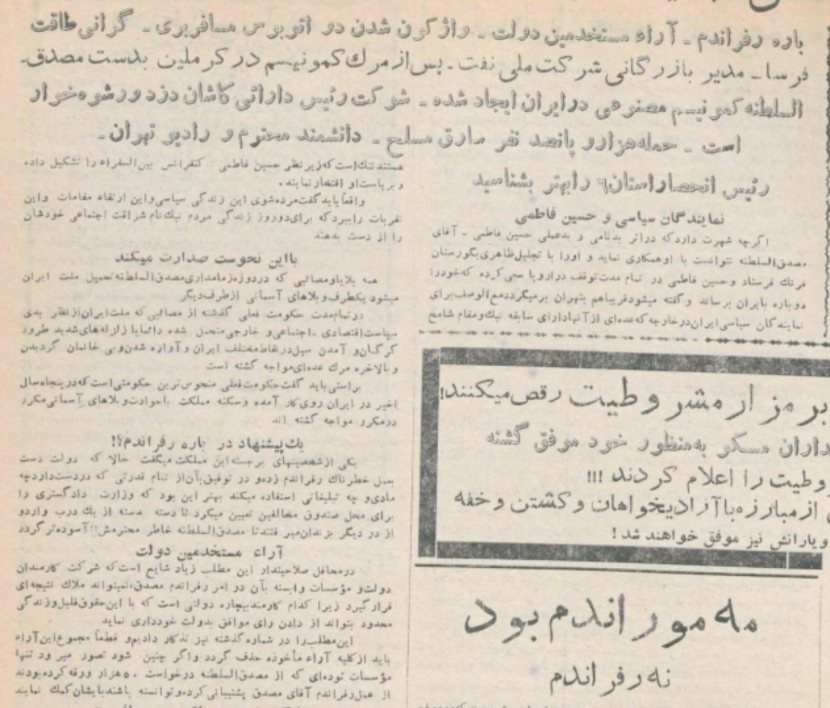 باره رفراندم ـ آراء مستخدمین دولت ـ واژگون شدن دو اتوبوس مسافربری ـ گرانی طاقت
فرسا ـ مدیر بازرگانی شرکت ملی نفت ـ پس از مرك کمونیسم در کرملین بدست مصدق‌ـ
السلطنه کمونیسم مصنوعی در ایران ایجاد شده ـ شوکت رئیس دارائی کاشان دزد و رشوه‌خوار
است ـ حمله هزار و پانصد نفر سارق مسلح ـ دانشمند محترم و رادیو تهران ـ
رئیس انحصار استان ۹ را بهتر بشناسید
نمایندگان سیاسی و حسین فاطمی
اگرچه شهرت دارد که در اثر بدنامی و بدعملی حسین فاطمی ـ آقای
مصدق‌السلطنه نتوانست با او همکاری نماید و اورا با تجلیل ظاهری بگورستان
فرنك فرستاد و حسین فاطمی در تمام مدت توقف در اروپا سعی کرده که خود را
دوباره بایران برساند و گفته میشود قریباً هم بتهران برمیگردد مع‌الوصف برای
نمایندگان سیاسی ایران در خارجه که عده‌ای از آنها دارای سابقه نیك و مقام شامخ
هستند ننك است که زیر نظر حسین فاطمی کنفرانس بین‌السفراء را تشکیل داده
و بریاست او افتخار نمایند .
واقعاً باید گفت مرده‌شوی این زندگی سیاسی و این ارتقاء مقامات و این
تقربات را ببرد که برای دو روز زندگی مردم نیك‌نام شرافت اجتماعی خودشان
را از دست بدهند
با این نحوست صدارت میکند
همه بلایا و مصائبی که در دوره زمامداری مصدق‌السلطنه تحمیل ملت ایران
میشود یکطرف و بلاهای آسمانی از طرف دیگر
در تمام مدت حکومت فعلی گذشته از مصائبی که ملت ایران از نظر بدی
سیاست اقتصادی ـ اجتماعی و خارجی متحمل شده دائماً با زلزله‌های شدید طرود
کرگان و آمدن سیل در نقاط مختلف ایران و آواره شدن و بی خانمان گردیدن
و بالاخره مرك عده‌ای مواجه گشته است
براستی باید گفت حکومت فعلی منحوس‌ترین حکومتی است که در پنجاه سال
اخیر در ایران روی کار آمده و سکنه مملکت با حوادث و بلاهای آسمانی مکرر
در مکرر مواجه گشته اند
یك پیشنهاد در باره رفراندم؟!
یکی از شخصیتهای برجسته این مملکت میگفت حالا که دولت دست
بعمل خطرناك رفراندم زده و در توفیق بآن از تمام قدرتی که در دست دارد چه
مادی و چه تبلیغاتی استفاده میکند بهتر این بود که وزارت دادگستری را
برای محل صندوق مخالفین تعیین میکرد تا دسته دسته از یك درب وارد و
از در دیگر بزندان میرفتند تا مصدق‌السلطنه خاطر محترمش!! آسوده‌تر گردد
آراء مستخدمین دولت
در محافل صلاحیتدار این مطلب زیاد شایع است که شرکت کارمندان
دولت و مؤسسات وابسته بآن در امر رفراندم مصدق نمیتواند ملاك نتیجه‌ای
قرار گیرد زیرا کدام کارمند بیچاره دولتی است که با این حقوق قلیل و زندگی
محدود بتواند از دادن رای موافق بدولت خودداری نماید
این مطلب را در شماره گذشته نیز تذکار دادیم و قطعاً مجموع این آراء
باید از کلیه آراء مأخوذه حذف گردد و اگر چنین شود تصور میرود تنها
مؤسسات توده‌ای که از مصدق‌السلطنه درخواست هزار ورقه کرده بودند
از عمل رفراندم آقای مصدق پشتیبانی کرده و توانسته باشند بایشان کمك نمایند
بر مزار مشروطیت رقص میکنند!
داران مسکو به منظور خود موفق گشته
وطیت را اعلام کردند !!!
از مبارزه با آزادیخواهان و کشتن و خفه
و یارانش نیز موفق خواهند شد !
مه مور اندم بود
نه رفراندم